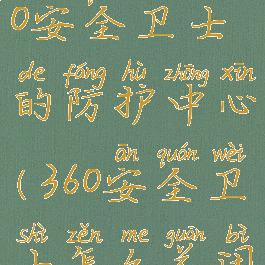 0安全卫士
de fáng hù zhōng xīn
的防护中心
ān quán wèi
(360安全卫
shì zěn me guān bì
士怎么关闭